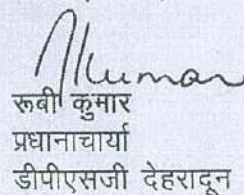 रूबी कुमार
प्रधानाचार्या
डीपीएसजी देहरादून